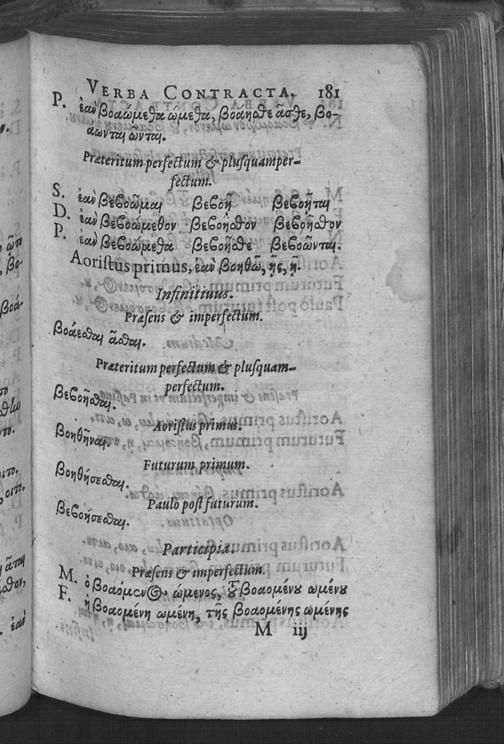 VERBA CONTRACTA. 181
P. ἐὰν βοαώμεθα ώμεθα, βοάησθε ᾶσθε, βο-
άωνται ῶνται.
Præteritum perfectum & plusquamper-
fectum.
S. ἐὰν βεβοῶμαι βεβοῇ βεβοῆται
D. ἐὰν βεβοώμεθον βεβοῆσθον βεβοῆσθον
P. ἐὰν βεβοώμεθα βεβοῆσθε βεβοῶνται.
Aoristus primus, ἐὰν βοηθῶ, ῇς, ῇ.
Infinitiuus.
Præsens & imperfectum.
βοάεσθαι ᾶσθαι.
Præteritum perfectum & plusquam-
perfectum.
βεβοῆσθαι.
Aoristus primus.
βοηθῆναι.
Futurum primum.
βοηθήσεσθαι.
Paulò post futurum.
βεβοήσεσθαι.
Participia.
Præsens & imperfectum.
M. ὁ βοαόμενος ώμενος, τοῦ βοαομένου ωμένου
F. ἡ βοαομένη ωμένη, τῆς βοαομένης ωμένης
M iij